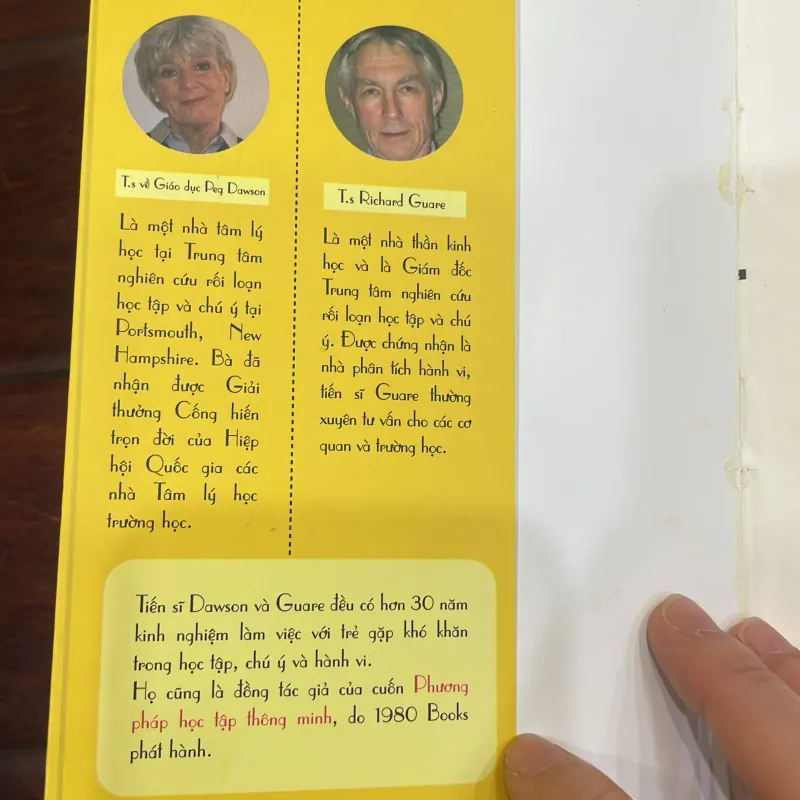 T.s về Giáo dục Peg Dawson
Là một nhà tâm lý
học tại Trung tâm
nghiên cứu rối loạn
học tập và chú ý tại
Portsmouth, New
Hampshire. Bà đã
nhận được Giải
thưởng Cống hiến
trọn đời của Hiệp
hội Quốc gia các
nhà Tâm lý học
trường học.
T.s Richard Guare
Là một nhà thần kinh
học và là Giám đốc
Trung tâm nghiên cứu
rối loạn học tập và chú
ý. Được chứng nhận là
nhà phân tích hành vi,
tiến sĩ Guare thường
xuyên tư vấn cho các cơ
quan và trường học.
Tiến sĩ Dawson và Guare đều có hơn 30 năm
kinh nghiệm làm việc với trẻ gặp khó khăn
trong học tập, chú ý và hành vi.
Họ cũng là đồng tác giả của cuốn Phương
pháp học tập thông minh, do 1980 Books
phát hành.